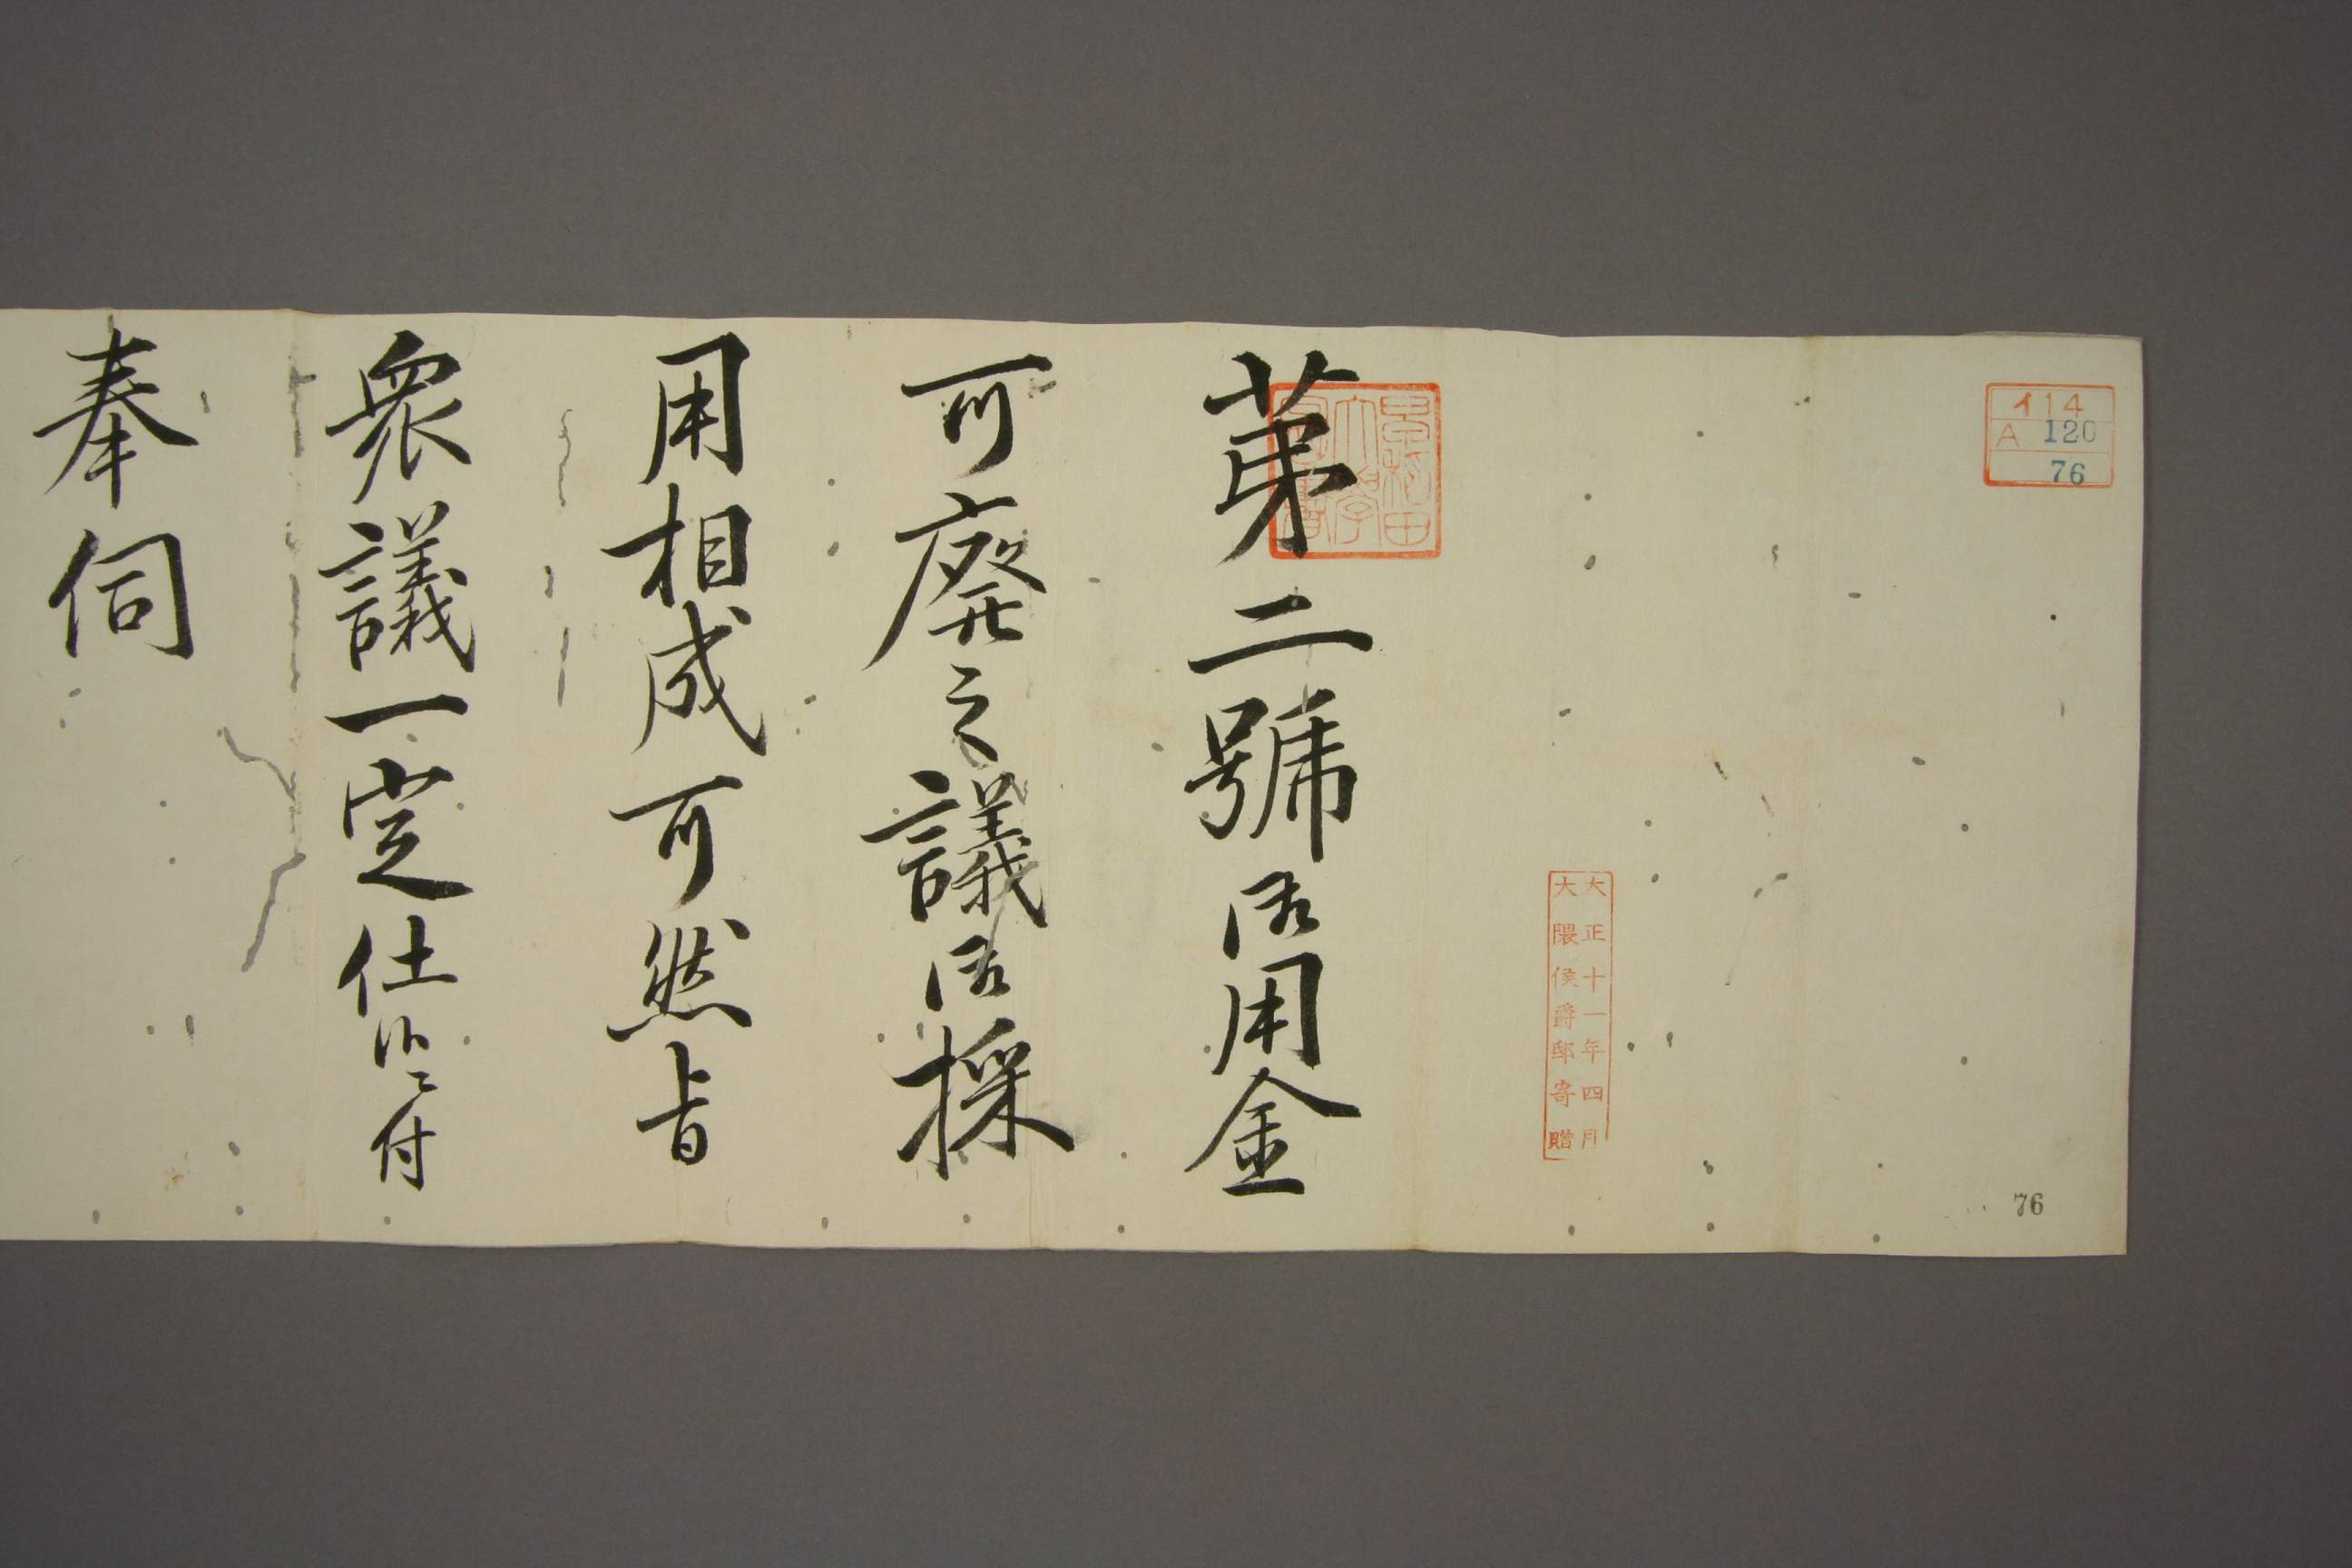 イ14
A 120
76
大正十一年四月
大隈侯爵邸寄贈
早稲田
大學
圖書
第二號御用金
可廃之議御採
用相成可然旨
衆議一定仕候ニ付
奉伺
76